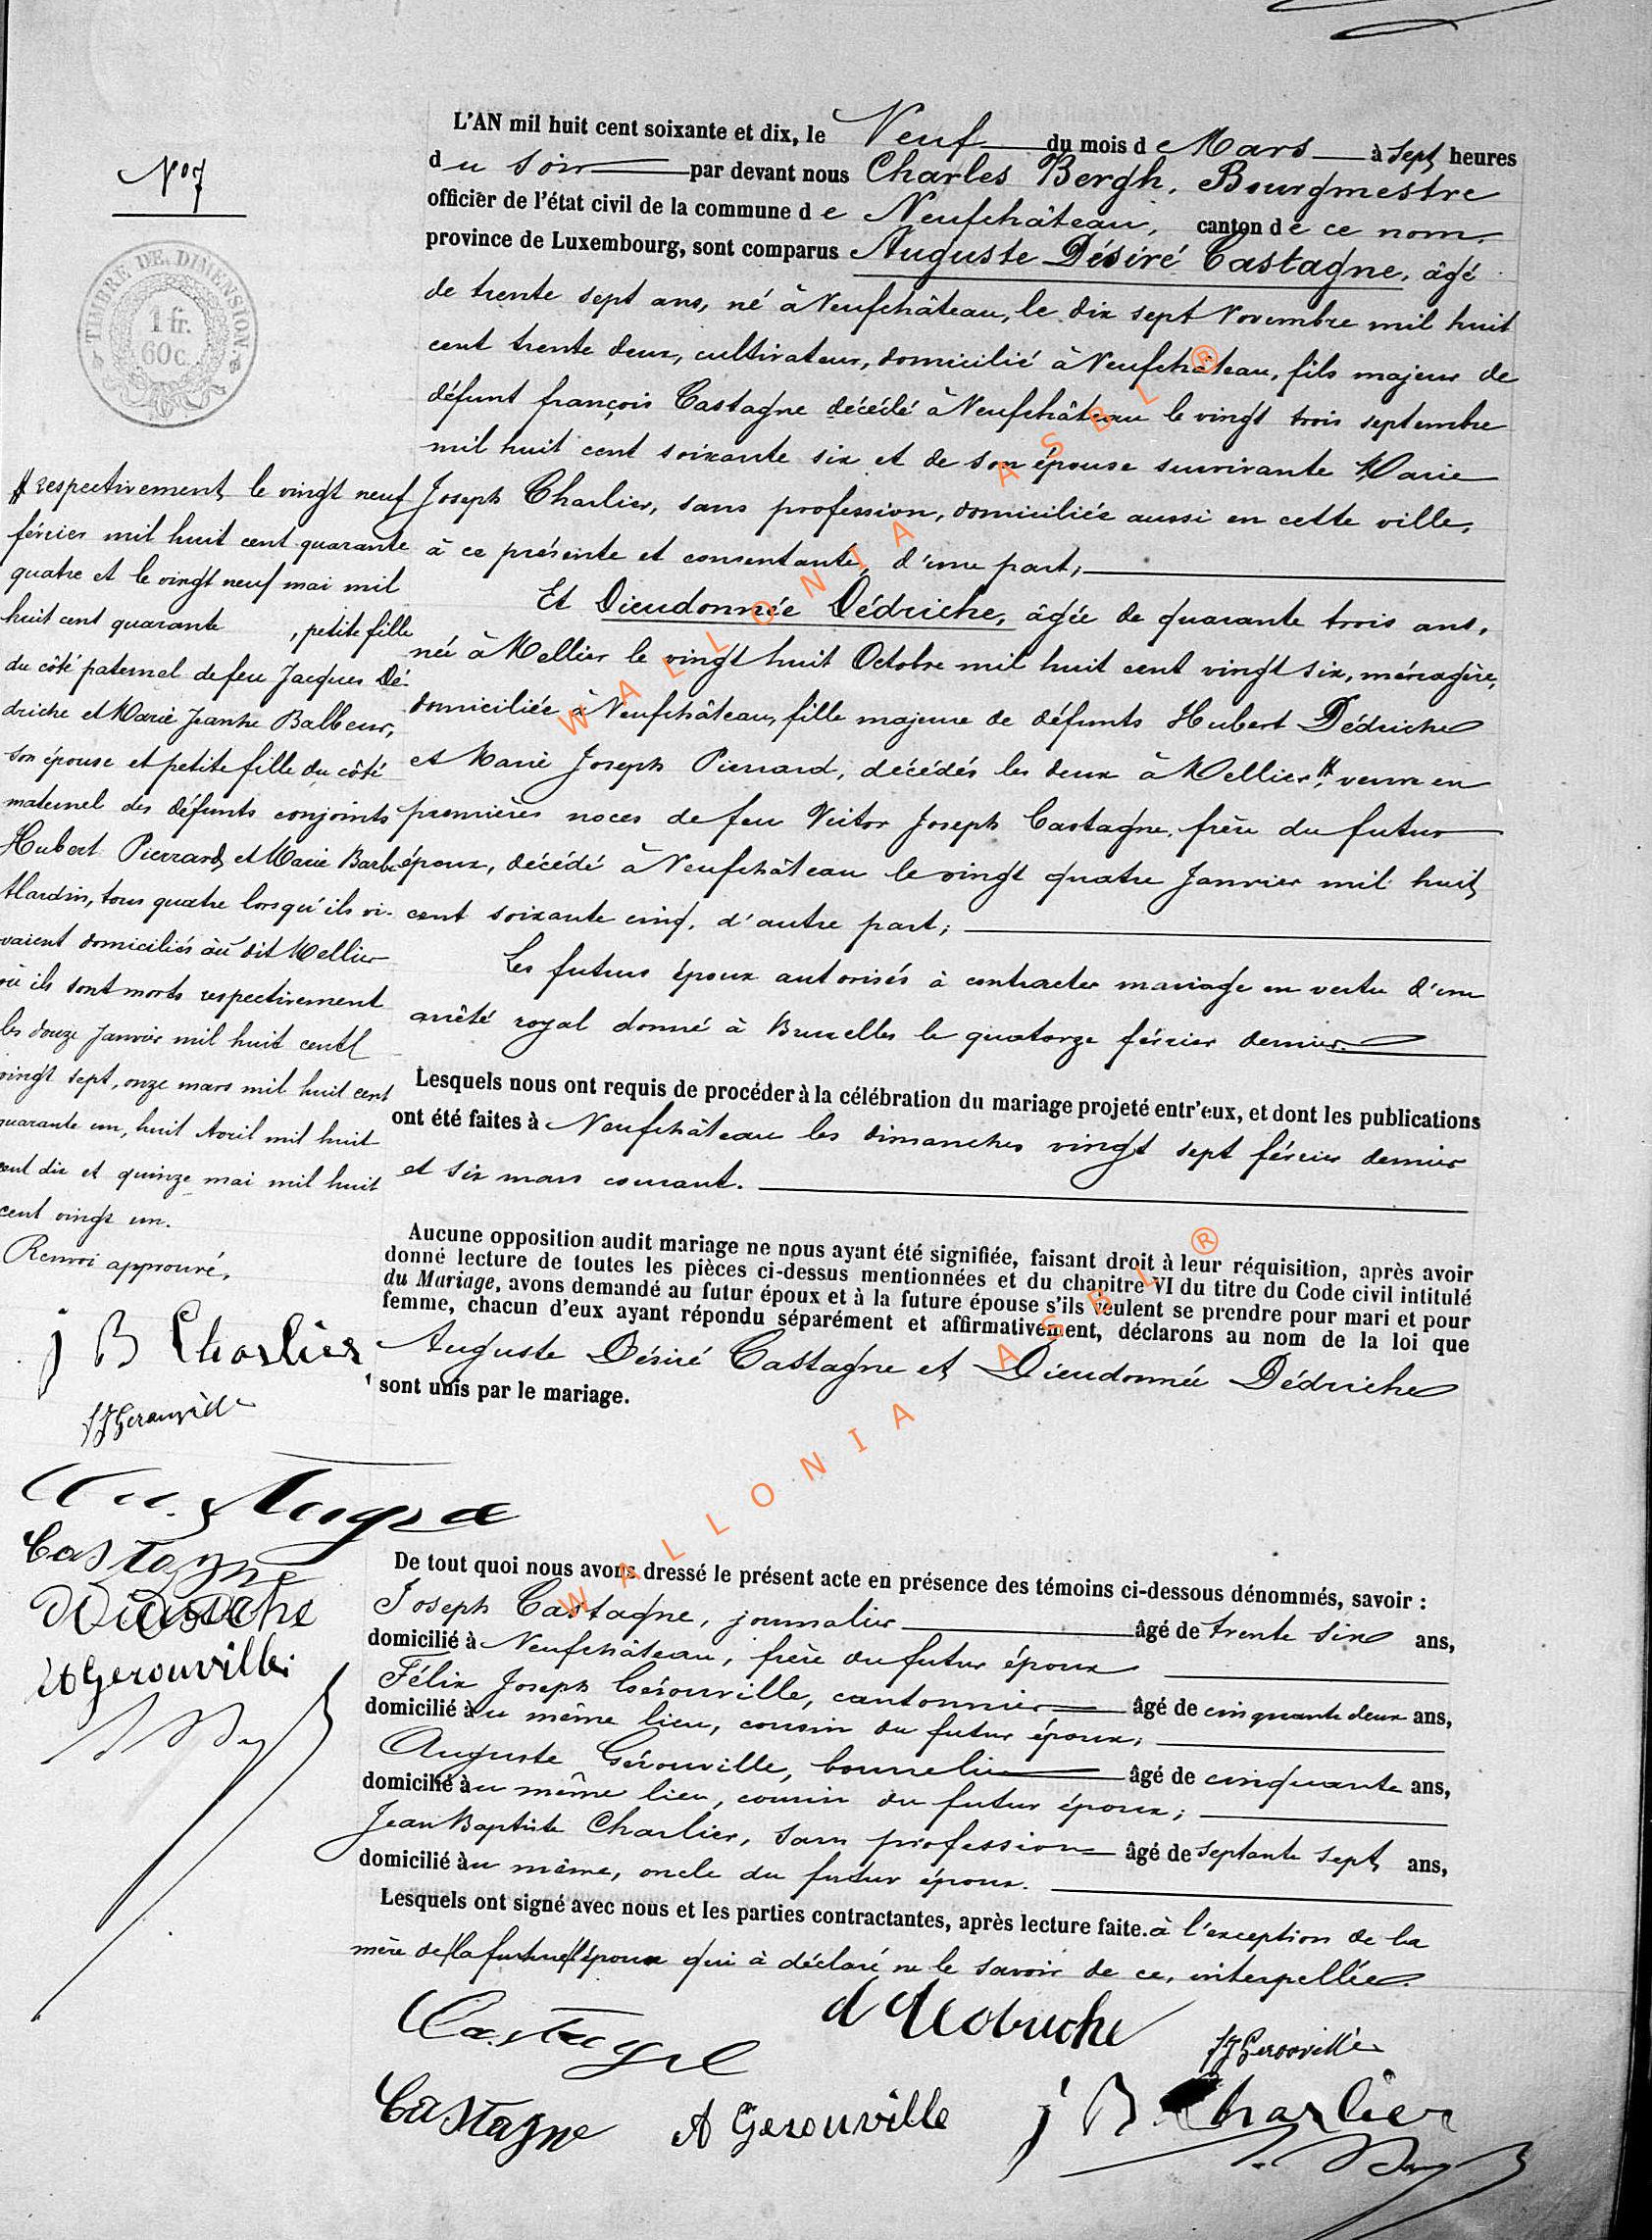 L'AN mil huit cent soixante et dix, le Neuf du mois d Mars à sept heures
du soir par devant nous Charles Bergh, Bourgmestre
officier de l'état civil de la commune de Neufchâteau, canton de ce nom,
province de Luxembourg, sont comparus Auguste Désiré Castagne, âgé
de trente sept ans, né à Neufchâteau, le dix sept Novembre mil huit
cent trente deux, cultivateur, domicilié à Neufchâteau, fils majeur de
défunt françois Castagne décédé à Neufchâteau le vingt trois septembre
mil huit cent soixante six et de son épouse survivante Marie
Joseph Charlier, sans profession, domiciliée aussi en cette ville,
à ce présente et consentante, d'une part,
Et Dieudonnée Dédriche, âgée de quarante trois ans,
née à Mellier le vingt huit Octobre mil huit cent vingt six, ménagère,
domiciliée à Neufchâteau, fille majeure de défunts Hubert Dédriche
et Marie Joseph Pierrard, décédés les deux à Mellier # veuve en
premières noces de feu Victor Joseph Castagne, frère du futur
époux, décédé à Neufchâteau le vingt quatre Janvier mil huit
cent soixante cinq, d'autre part;
Les futurs époux autorisés à contracter mariage en vertu d'un
arrêté royal donné à Bruxelles le quatorze février dernier.
Lesquels nous ont requis de procéder à la célébration du mariage projeté entr'eux, et dont les publications
ont été faites à Neufchâteau les dimanches vingt sept février dernier
et six mars courant.
Aucune opposition audit mariage ne nous ayant été signifiée, faisant droit à leur réquisition, après avoir
donné lecture de toutes les pièces ci-dessus mentionnées et du chapitre VI du titre du Code civil intitulé
du Mariage, avons demandé au futur époux et à la future épouse s'ils veulent se prendre pour mari et pour
femme, chacun d'eux ayant répondu séparément et affirmativement, déclarons au nom de la loi que
Auguste Désiré Castagne et Dieudonnée Dédriche
sont unis par le mariage.
De tout quoi nous avons dressé le présent acte en présence des témoins ci-dessous dénommés, savoir :
Joseph Castagne, journalier âgé de trente six ans,
domicilié à Neufchâteau, frère du futur époux
Félix Joseph Gérouville, cantonnier âgé de cinquante deux ans,
domicilié au même lieu, cousin du futur époux;
Auguste Gérouville, bourrelier âgé de cinquante ans,
domicilié au même lieu, cousin du futur époux;
Jean Baptiste Charlier, sans profession âgé de septante sept ans,
domicilié au même, oncle du futur époux.
Lesquels ont signé avec nous et les parties contractantes, après lecture faite. à l'exception de la
mère de la future époux qui à déclaré ne le savoir de ce, interpellée.
Castagne
d dedriche
FJ Gerouville
Castagne
A Gerouville
j B Charlier
N° 7
TIMBRE DE DIMENSION
1 fr.
60 c.
# respectivement le vingt neuf
février mil huit cent quarante
quatre et le vingt neuf mai mil
huit cent quarante , petite fille
du côté paternel de feu Jacques Dé-
driche et Marie Jeanne Balbeur,
son épouse et petite fille du côté
maternel des défunts conjoints
Hubert Pierrard et Marie Barbe
Hardin, tous quatre lorsqu'ils vi-
vaient domiciliés au dit Mellier
où ils sont morts respectivement
les douze Janvier mil huit cent
vingt sept, onze mars mil huit cent
quarante un, huit Avril mil huit
cent dix et quinze mai mil huit
cent vingt un.
Renvoi approuvé,
j B Charlier
FJ Gerouville
Castagne
Castagne
d dedriche
A Gerouville
WALLONIA ASBL ®
WALLONIA ASBL ®